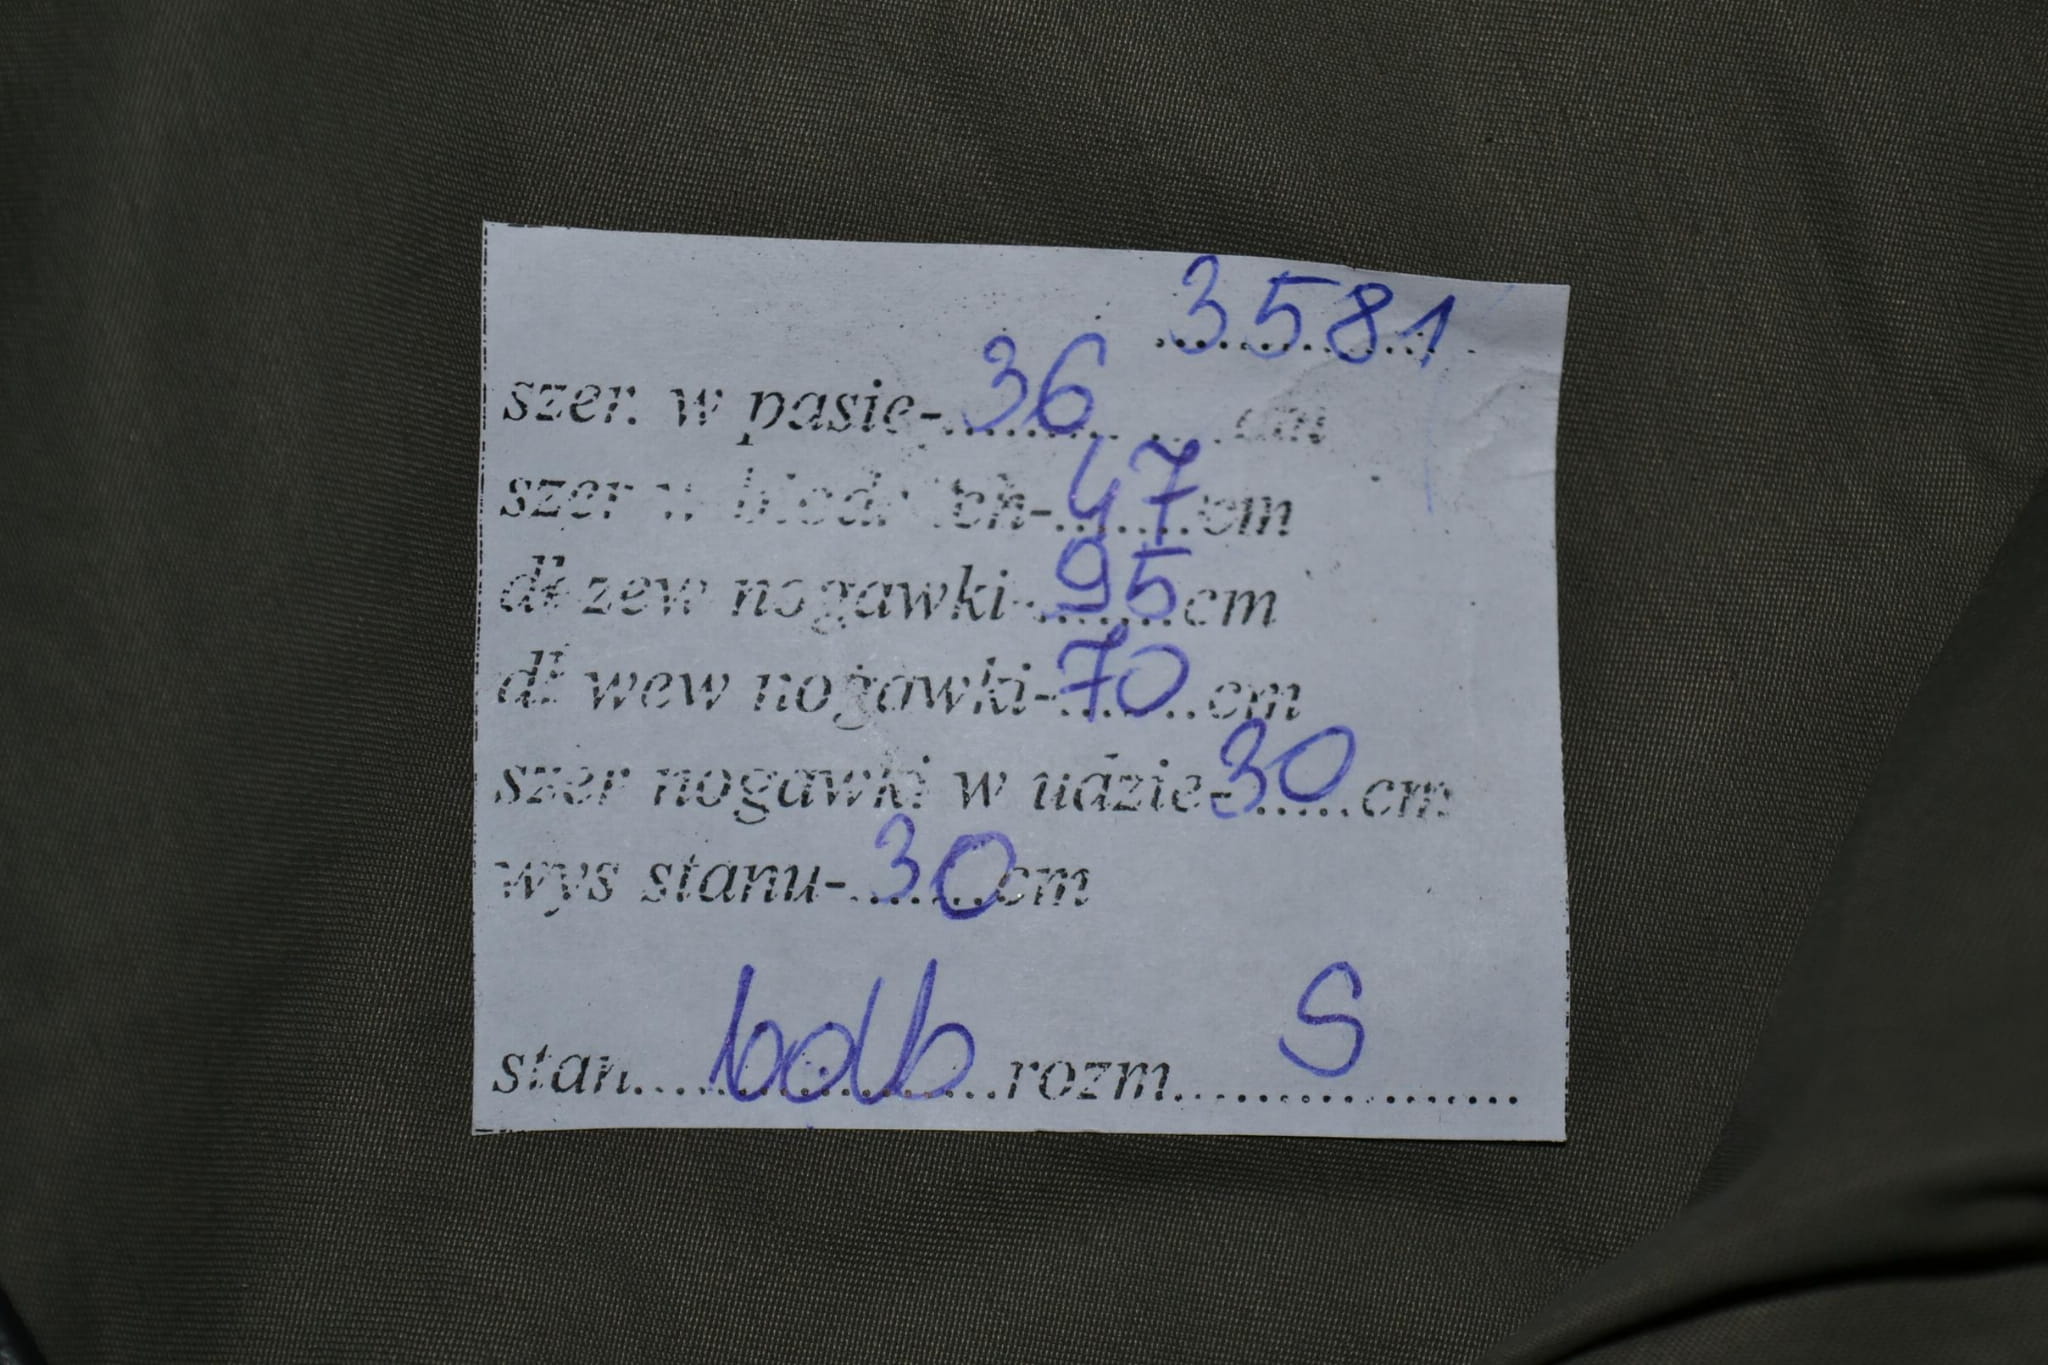 3581
szer. w pasie-36 cm
szer w biodrach-47cm
dł zew nogawki-95cm
dł wew nogawki-70cm
szer nogawki w udzie-30cm
wys stanu-30cm
stan bdb rozm S